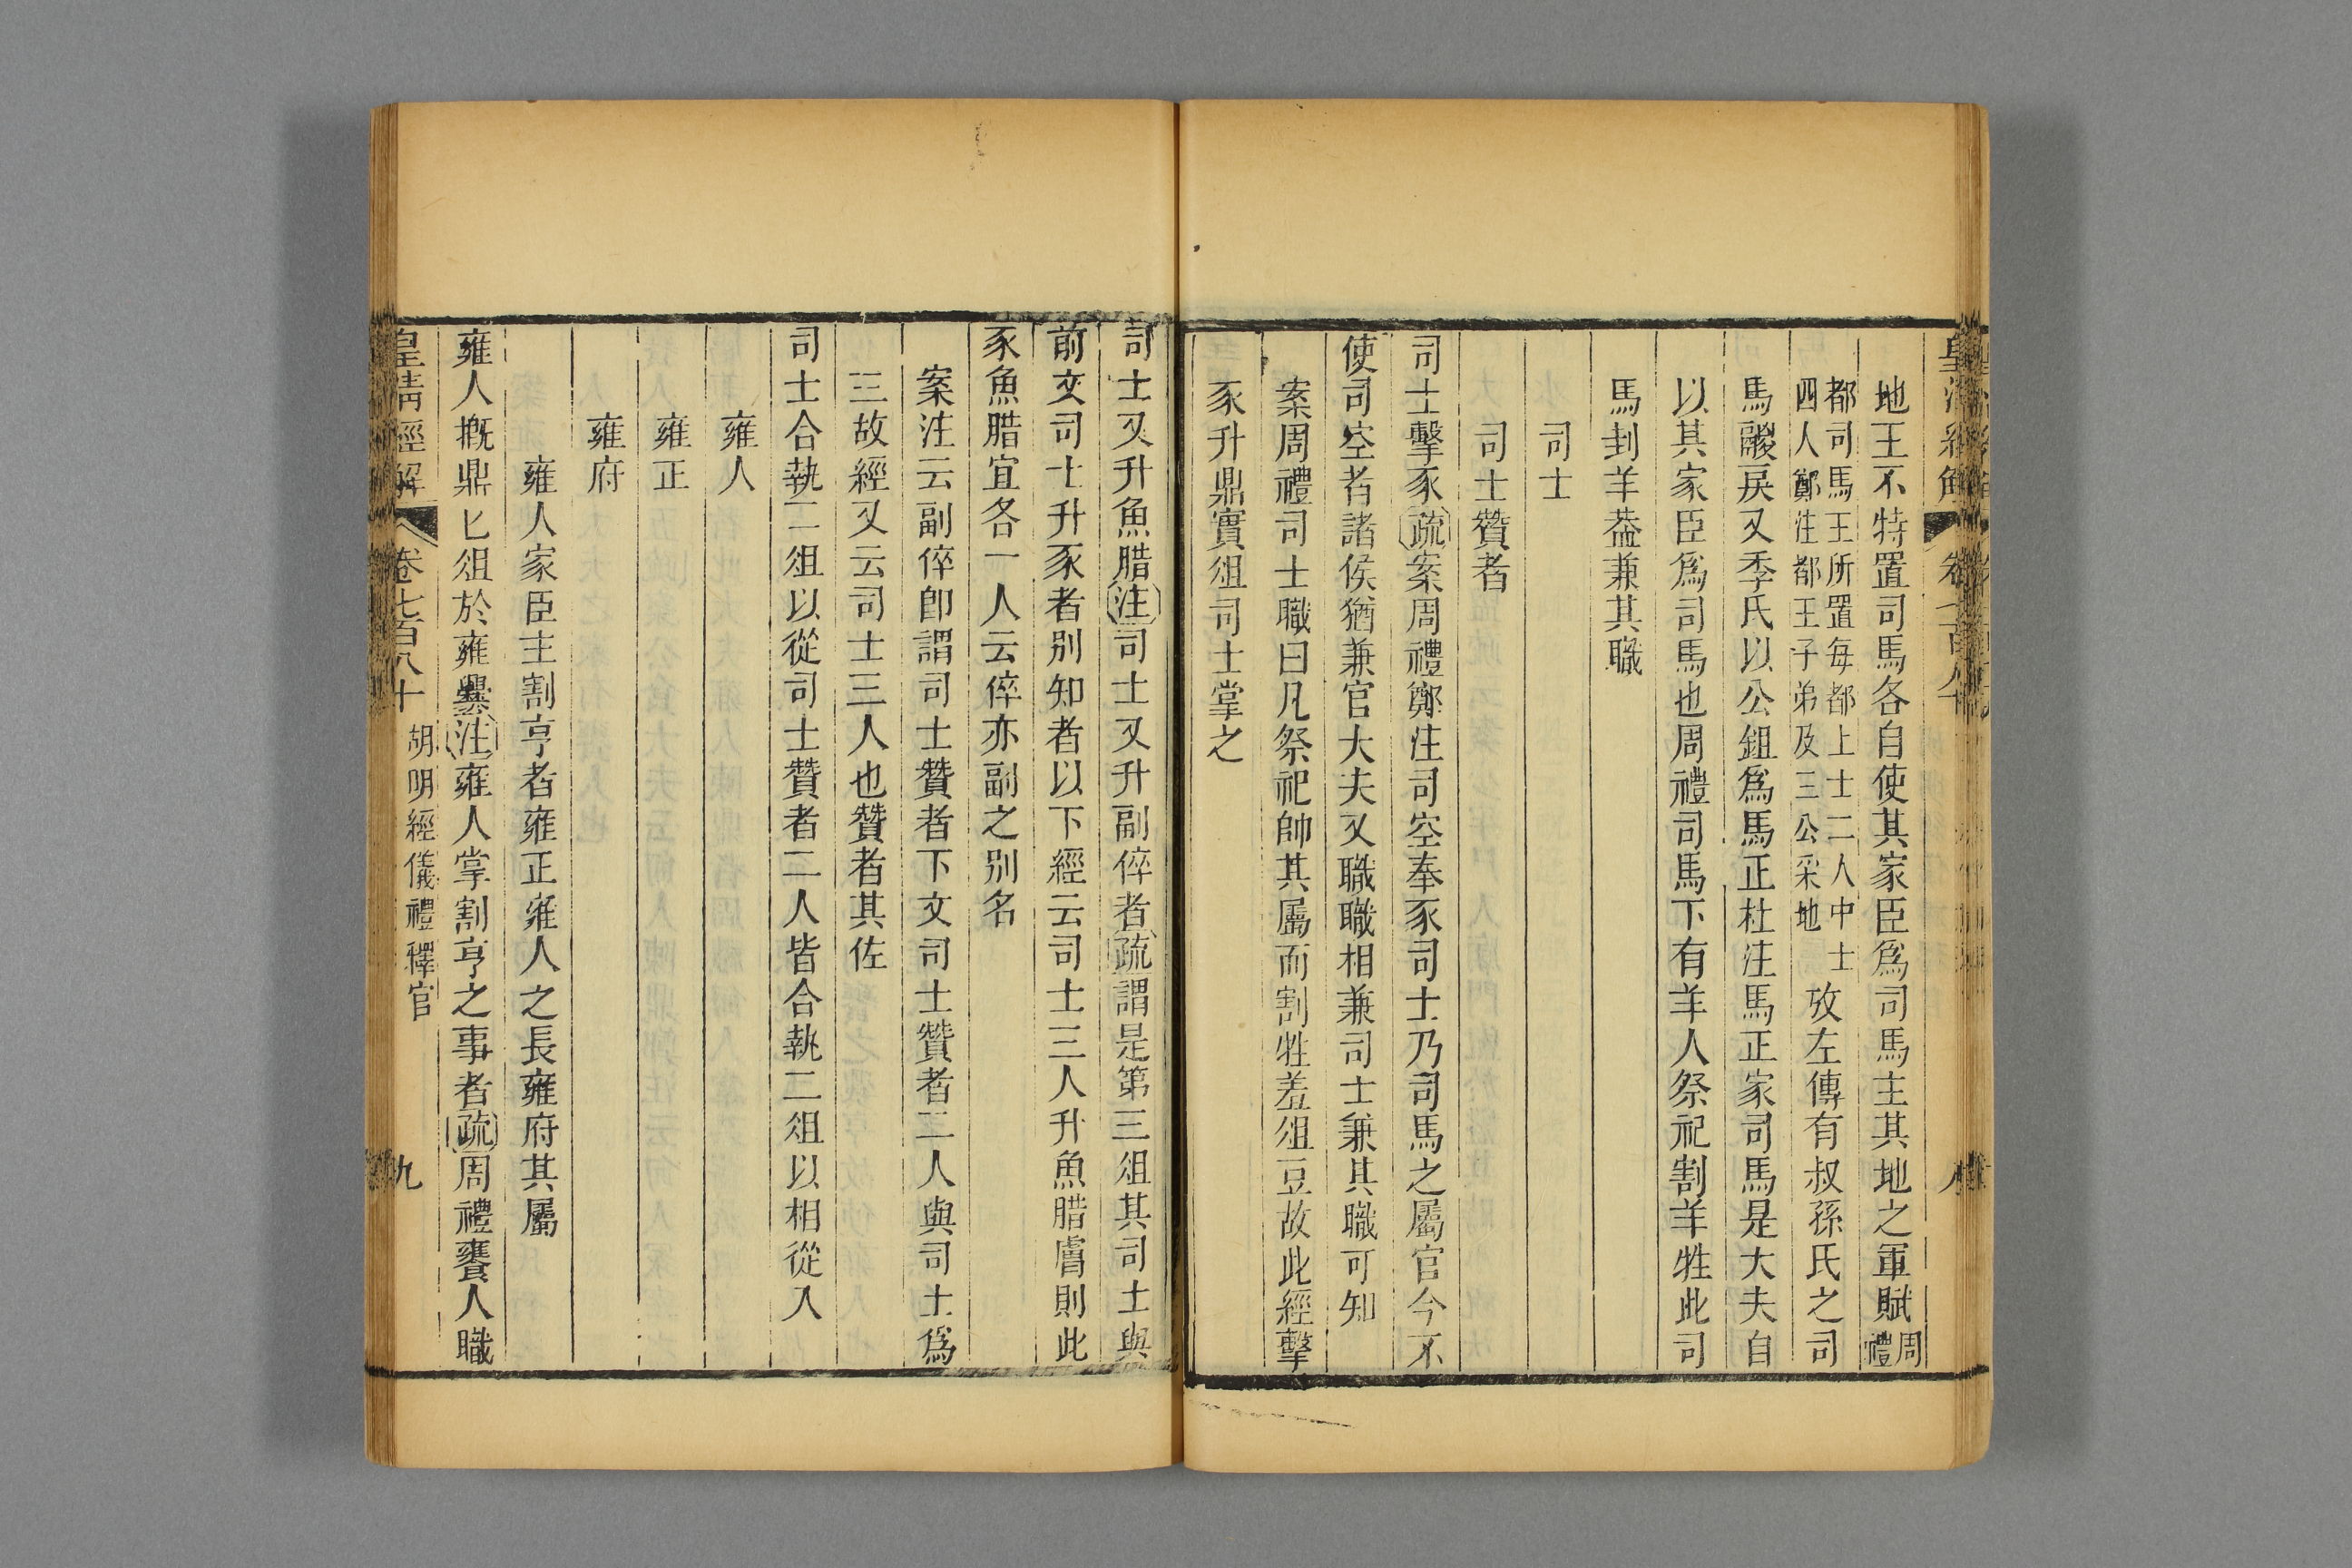 地王不特置司馬各自使其家臣爲司馬主其地之軍賦周禮
都司馬王所置每都上士二人中士四人鄭注都王子弟及三公采地攷左傳有叔孫氏之司
馬鬷戾又季氏以公鉏爲馬正杜注馬正家司馬是大夫自
以其家臣爲司馬也周禮司馬下有羊人祭祀割羊牲此司
馬刲羊葢兼其職
司士
司士贊者
司士擊豕疏案周禮鄭注司空奉豕司士乃司馬之屬官今不
使司空者諸侯猶兼官大夫又職職相兼司士兼其職可知
案周禮司士職曰凡祭祀帥其屬而割牲羞俎豆故此經擊
豕升鼎實俎司士掌之
司士又升魚腊注司士又升副倅者疏謂是第三俎其司士與
前文司士升豕者别知者以下經云司士三人升魚腊膚則此
豕魚腊宜各一人云倅亦副之别名
案注云副倅卽謂司士贊者下文司士贊者二人與司士爲
三故經又云司士三人也贊者其佐
司士合執二俎以從司士贊者二人皆合執二俎以相從入
雍人
雍正
雍府
雍人家臣主割亨者雍正雍人之長雍府其屬
雍人摡鼎匕俎於雍爨注雍人掌割亨之事者疏周禮饔人職
皇淸經解 卷七百八十 胡明經儀禮釋官 九